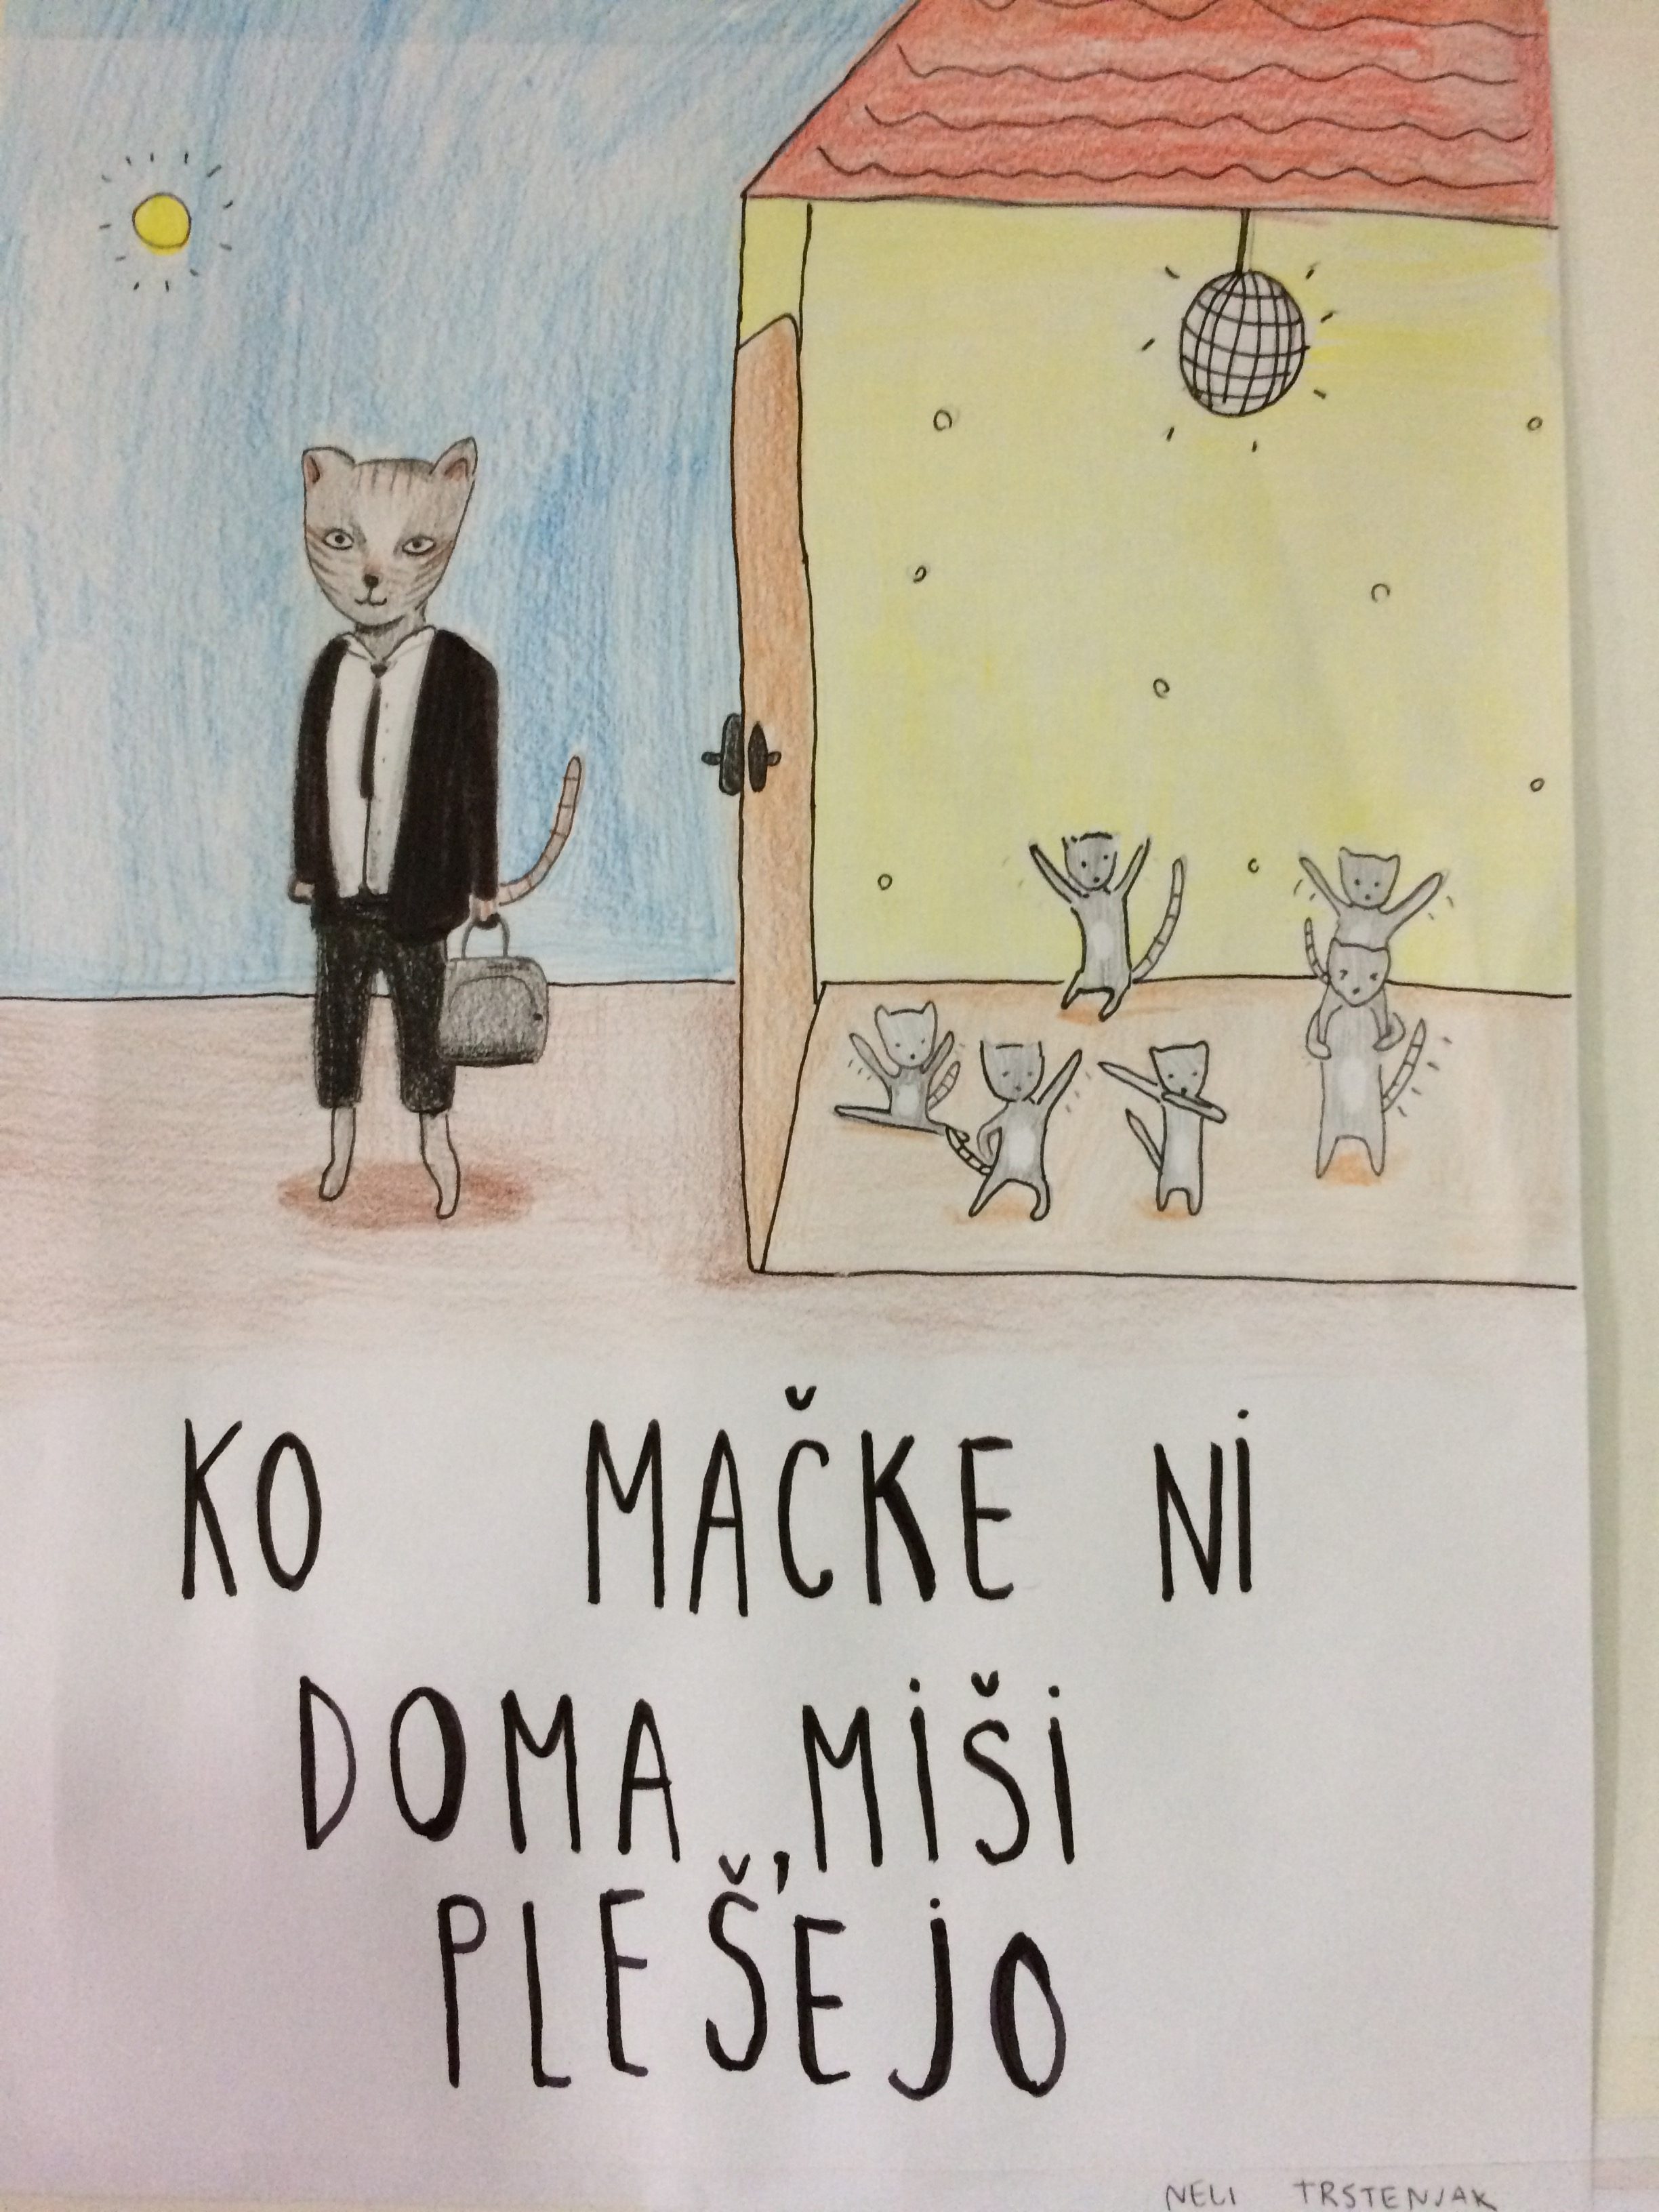 KO MAČKE NI
DOMA, MIŠI
PLEŠEJO
NELI TRSTENJAK